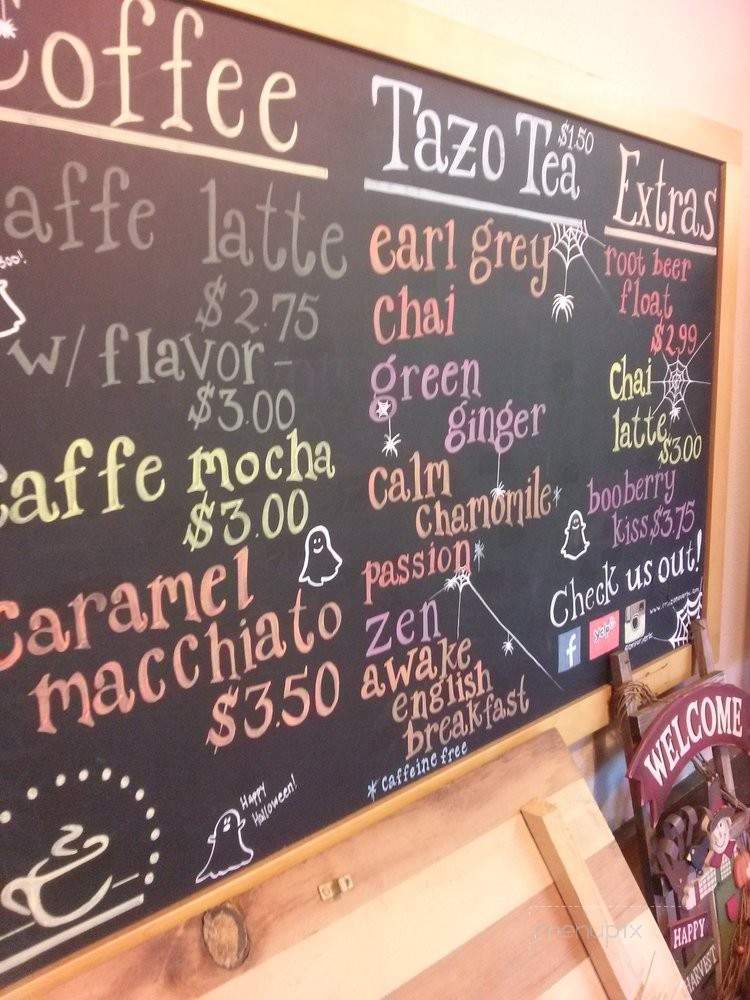 Coffee
caffe latte
$2.75
w/ flavor -
$3.00
caffe mocha
$3.00
caramel
macchiato
$3.50
Boo!
Happy
Halloween!
Tazo Tea $1.50
earl grey
chai
green
ginger
calm
chamomile*
passion*
zen
awake
english
breakfast
* caffeine free
Extras
root beer
float
$2.99
chai
latte
$3.00
booberry
kiss $3.75
Check us out!
f
yelp
WELCOME
HAPPY
HARVEST
menupix